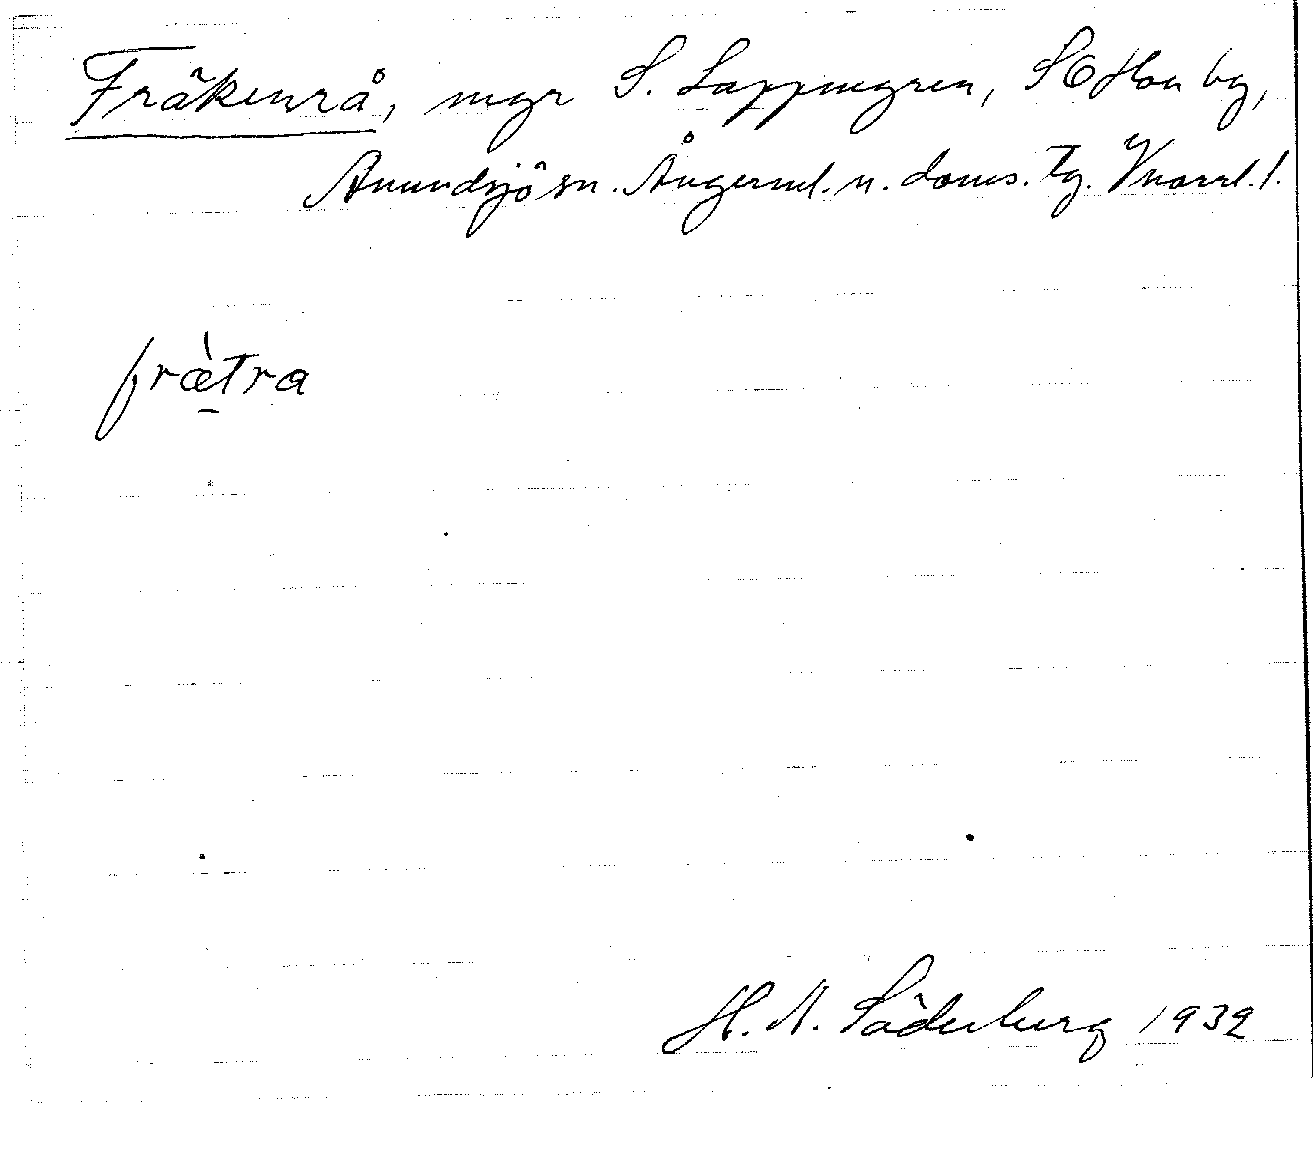 Fräkenrå, mgr S. Lappmyren, SE Hon bg,
Anundsjö sn. Ångerml. n. doms. Tg. Vnorrl. l.
fræ̀tra
H. N. Söderberg 1932